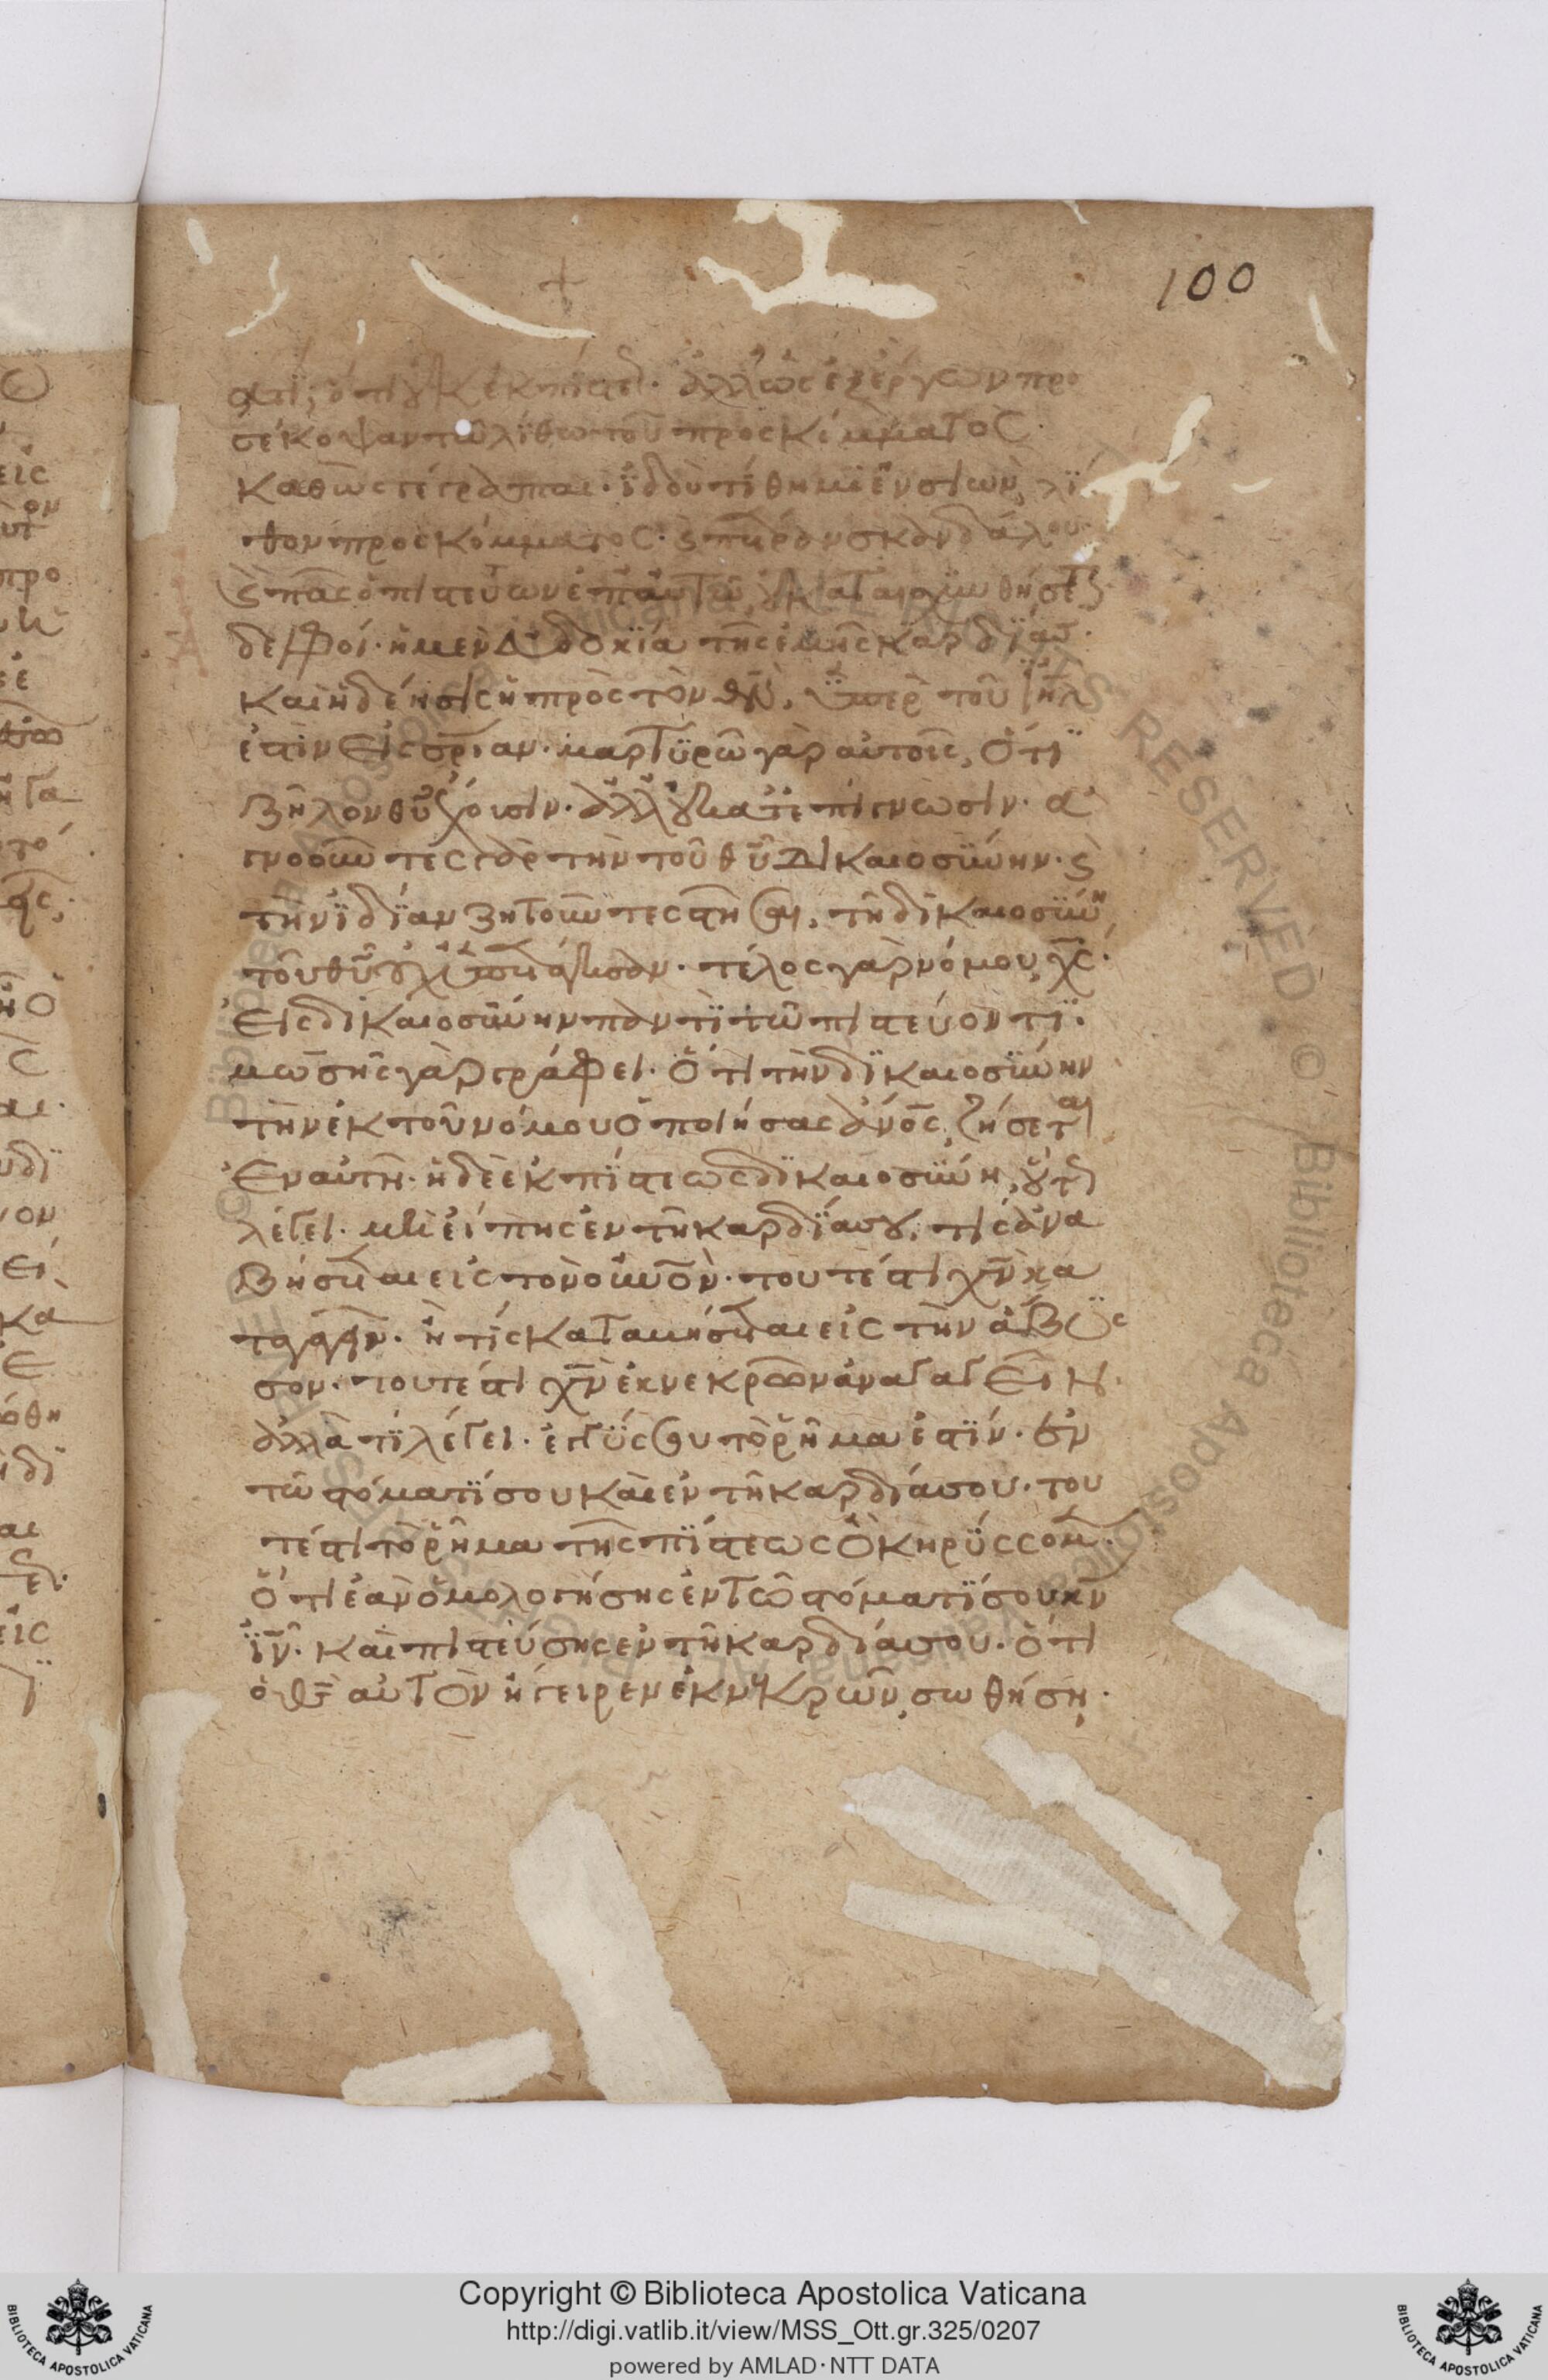 100
ατί; ὅτι οὐκ ἐκ πίστε. ἀλλ' ὡς ἐξ ἔργων προ
σέκοψαν τῷ λίθω τοῦ προσκόμματος.
καθὼς γέγραπται. ἰδοὺ τίθημι ἐν σιὼν λί
θον προσκόμματος. ϗ πέτραν σκανδάλου.
ϗ πᾶς ὁ πιστεύων ἐπ' αὐτῷ, οὐ καταισχυνθήσετ
δελφοί. ἡ μὲν εὐδοκία τῆς ἐμῆς καρδίας.
καὶ ἡ δέησις ἡ πρὸς τὸν θν, ὑπὲρ τοῦ ιηλ
ἐστὶν εἰς σριαν. μαρτυρῶ γὰρ αὐτοῖς, ὅτι
ζῆλον θυ ἔχουσιν. ἀλλ' οὐ κατ' ἐπίγνωσιν. ἀ
γνοοῦντες γὰρ τὴν τοῦ θυ δικαιοσύνην. ϗ
τὴν ἰδίαν ζητοῦντες στῆσαι, τῇ δικαιοσύνη
τοῦ θυ οὐχ ὑπετάγησαν. τέλος γὰρ νόμου, χς.
εἰς δικαιοσύνην παντὶ τῷ πιστεύοντι.
μωσῆς γὰρ γράφει. ὅτι τὴν δικαιοσύνην
τὴν ἐκ τοῦ νόμου ὁ ποιήσας ανος, ζήσεται
ἐν αὐτῇ. ἡ δὲ ἐκ πίστεως δικαιοσύνη, οὕτω
λέγει. μὴ εἴπης ἐν τῇ καρδία σου, τίς ἀνα
βήσεται εἰς τὸν οὐνον. τουτέστι χν κα
ταγαγεῖν. ἢ τίς καταβήσεται εἰς τὴν ἄβυσ
σον. τουτέστι χν ἐκ νεκρῶν ἀναγαγεῖν.
ἀλλὰ τί λέγει. ἐγγύς σου τὸ ῥῆμα ἐστίν. ἐν
τῷ στόματί σου καὶ ἐν τῇ καρδία σου. του
τέστι τὸ ῥῆμα τῆς πίστεως ὃ κηρύσσομ.
ὅτι ἐὰν ὁμολογήσης ἐν τῷ στόματί σου κν
ιν. καὶ πιστεύσης ἐν τῇ καρδία σου. ὅτι
ὁ θς αὐτὸν ἤγειρεν ἐκ νεκρῶν, σωθήση.
Copyright © Biblioteca Apostolica Vaticana
http://digi.vatlib.it/view/MSS_Ott.gr.325/0207
powered by AMLAD·NTT DATA